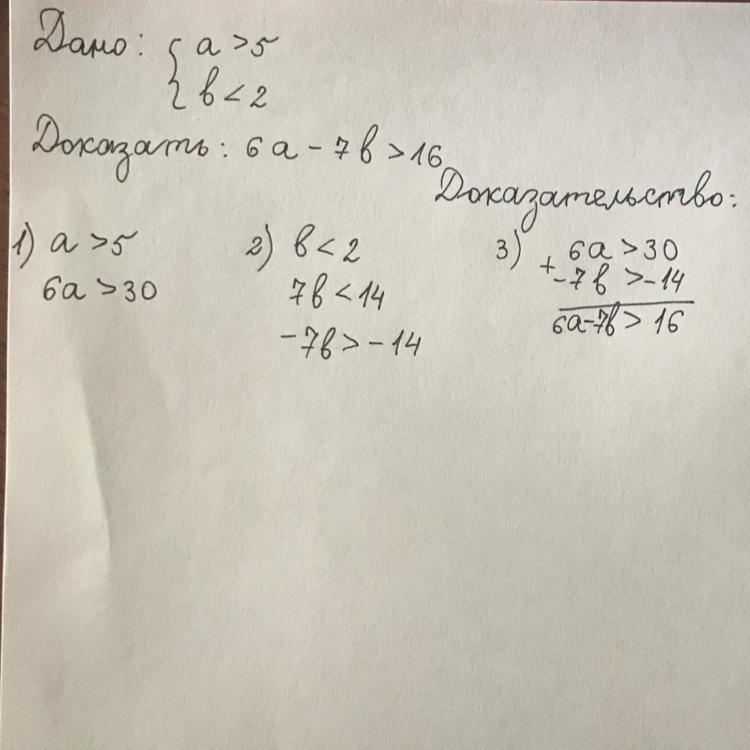 Дано: { a > 5
b < 2
Доказать: 6a - 7b > 16
Доказательство:
1) a > 5
6a > 30
2) b < 2
7b < 14
-7b > -14
3) 6a > 30
+ -7b > -14
6a-7b > 16